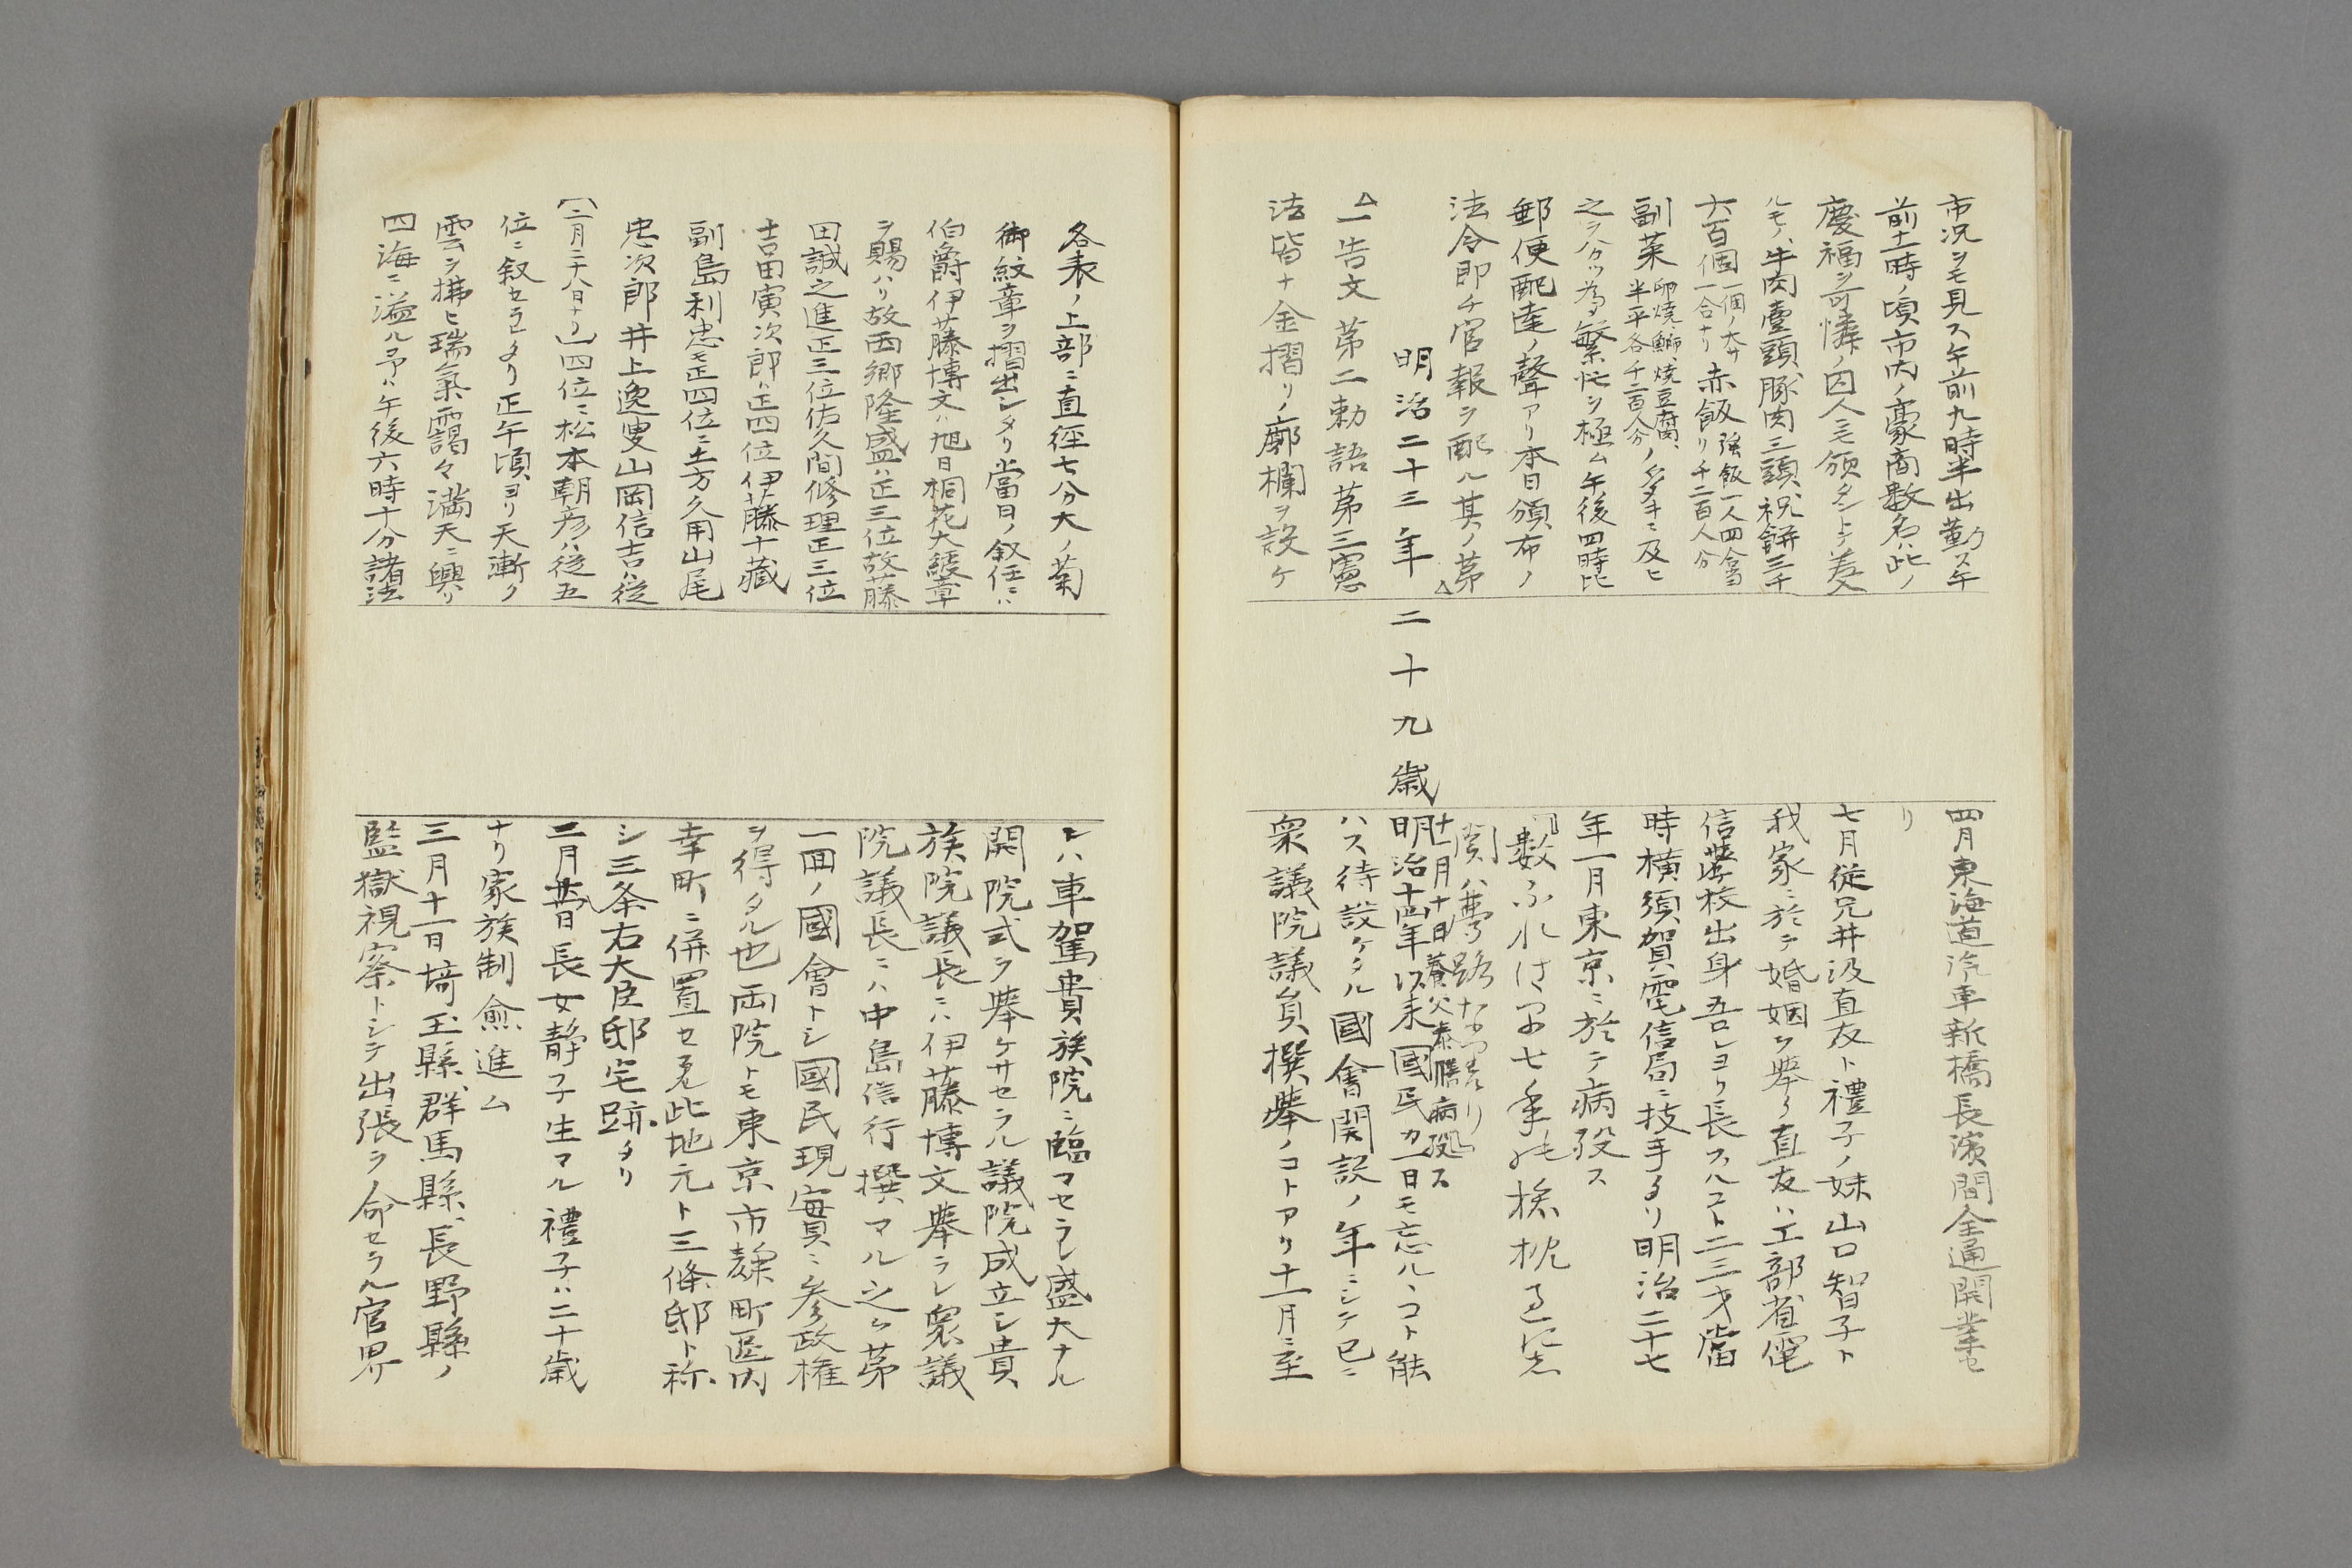 市況ヲモ見ス午前九時半出勤ス午
前十一時ノ頃市内ノ豪商数名ハ此ノ
慶福ヲ可憐ノ囚人ニモ頒タントテ差
ルモノ、牛肉壹頭、豚肉三頭、祝餅三千
六百個一個ノ大サ一合ナリ赤飯強飯一人四合当リ千二百人分
副菜卵焼、鰤、焼豆腐、半平各千二百人分ノ多キニ及ヒ
之ヲ分ツ為メ繁忙ヲ極ム午後四時比
郵便配達ノ聲アリ本日頒布ノ
法令即チ官報ヲ配ル其ノ第
明治二十三年 二十九歳
一告文第二勅語第三憲
法皆ナ金摺リノ廓欄ヲ設ケ
四月東海道汽車新橋長濱間全通開業セ
リ
七月従兄井汲直友ト禮子ノ妹山口智子ト
我家ニ於テ婚姻ヲ挙ク直友ハ工部省電
信学校出身吾レヨリ長スルコト二三才當
時横須賀電信局ニ技手タリ明治二十七
年一月東京ニ於テ病殁ス
『数ふれは
関ハ夢路なりけり』
十一月十日養父泰騰病殁ス
明治十四年以来國民カ一日モ忘ル、コト能
ハス待設ケタル國會開設ノ年ニシテ已ニ
衆議院議員撰挙ノコトアリ十一月ニ至
各表ノ上部ニ直径七分大ノ菊
御紋章ヲ摺出シタリ當日ノ叙任ニハ
伯爵伊藤博文ハ旭日桐花大綬章
ヲ賜ハリ故西郷隆盛ハ正三位故藤
田誠之進正三位佐久間修理正三位
吉田寅次郎ハ正四位伊藤十藏
副島利忠モ正四位ニ土方久用山尾
忠次郎井上逸叟山岡信吉ハ従
(二月二十八日ナリ)四位ニ松本朝彦ハ従五
位ニ叙セラレタリ正午頃ヨリ天漸ク
雲ヲ拂ヒ瑞氣靄々満天ニ興リ
四海ニ溢ル予ハ午後六時十分諸法
レハ車駕貴族院ニ臨マセラレ盛大ナル
開院式ヲ挙ケサセラル議院成立シ貴
族院議長ニハ伊藤博文挙ラレ衆議
院議長ニハ中島信行撰マル之ヲ第
一回ノ國會トシ國民現實ニ参政権
ヲ得タル也両院トモ東京市麹町區内
幸町ニ併置セラル此地元ト三條邸ト称
シ三条右大臣邸宅跡タリ
二月廿八日長女静子生マル禮子ハ二十歳
ナリ家族制愈進ム
三月十一日埼玉縣、群馬縣、長野縣ノ
監獄視察トシテ出張ヲ命セラル官界